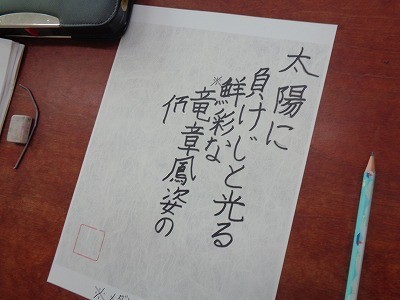 太陽に
負けじと光る
※鮮彩な
竜章鳳姿の